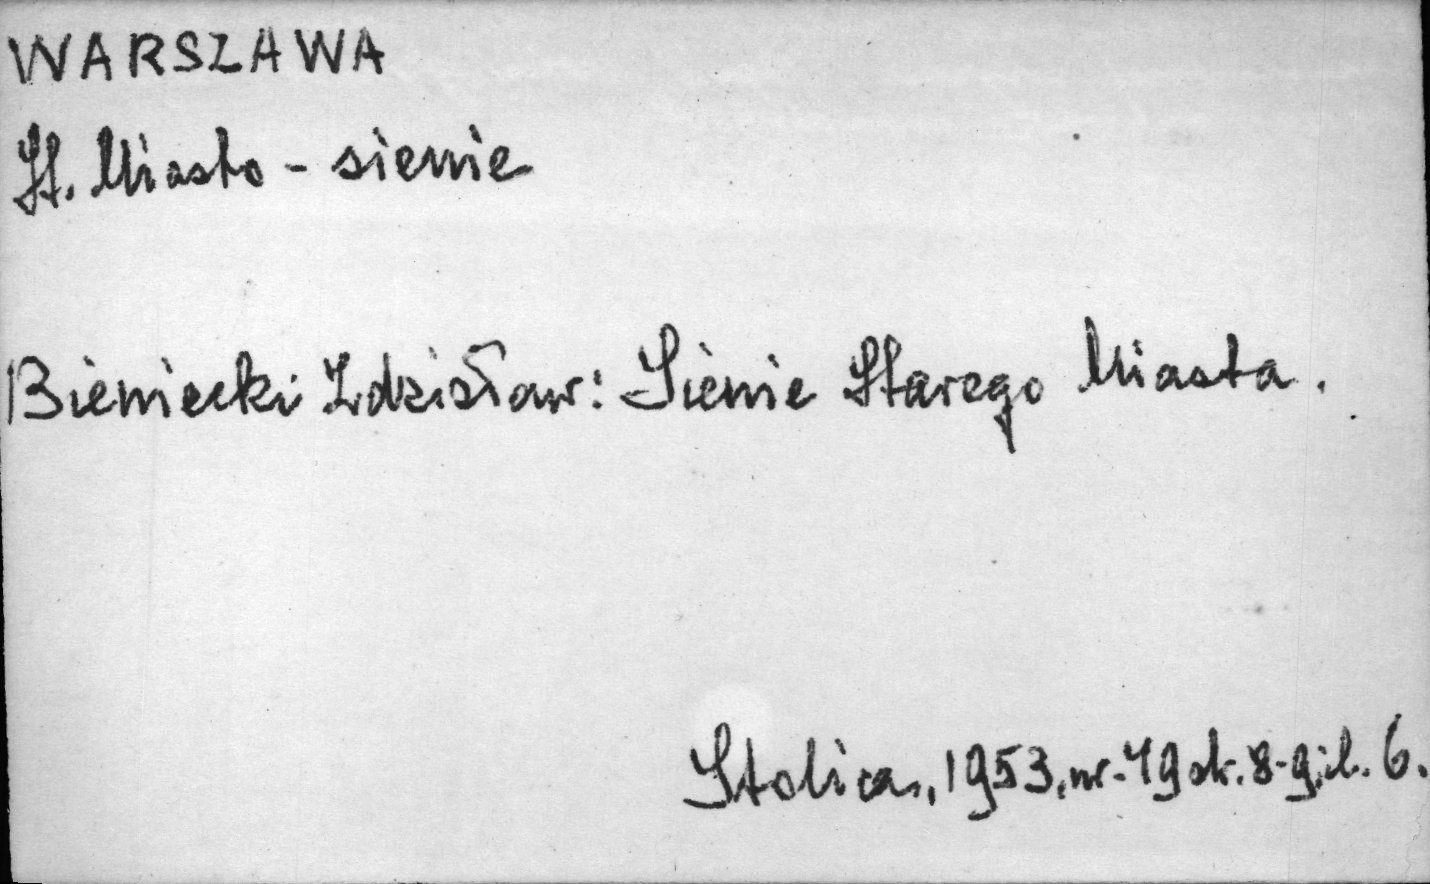 WARSZAWA
St. Miasto - sienie
Bieniecki Zdzisław: Sienie Starego Miasta.
Stolica, 1953, nr. 49 str. 8-9, il. 6.